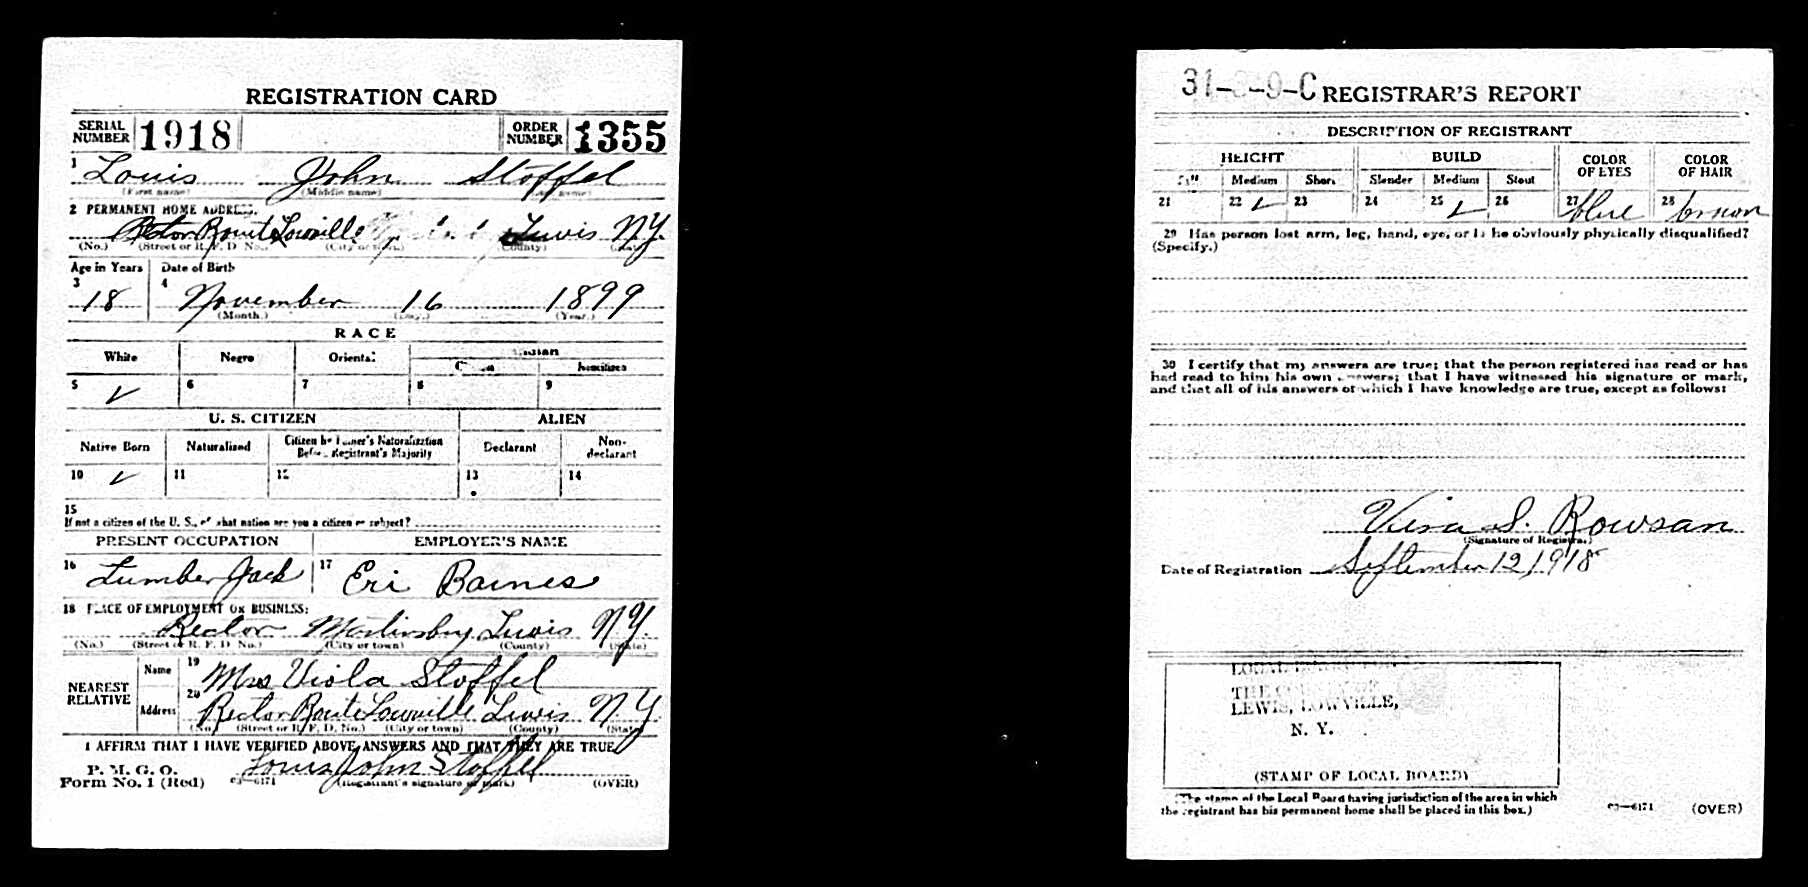 REGISTRATION CARD
SERIAL NUMBER 1918 ORDER NUMBER 1355
1 Louis John Stoffel
(First name) (Middle name) (Last name)
2 PERMANENT HOME ADDRESS:
Rector Route Lowville Lewis N.Y.
(No.) (Street or R. F. D. No.) (City or town) (County) (State)
Age in Years Date of Birth
3 18 4 November 16 1899
(Month.) (Day.) (Year.)
RACE
White Negro Oriental Indian
Citizen Noncitizen
5 ✓ 6 7 8 9
U. S. CITIZEN ALIEN
Native Born Naturalized Citizen by Father's Naturalization Before Registrant's Majority Declarant Non-declarant
10 ✓ 11 12 13 14
15
If not a citizen of the U. S., of what nation are you a citizen or subject?
PRESENT OCCUPATION EMPLOYER'S NAME
16 Lumber Jack 17 Eri Baines
18 PLACE OF EMPLOYMENT OR BUSINESS:
Rector Martinsburg Lewis N.Y.
(No.) (Street or R. F. D. No.) (City or town) (County) (State)
NEAREST RELATIVE Name 19 Mrs Viola Stoffel
Address 20 Rector Route Lowville Lewis N.Y.
(No.) (Street or R. F. D. No.) (City or town) (County) (State)
I AFFIRM THAT I HAVE VERIFIED ABOVE ANSWERS AND THAT THEY ARE TRUE
P. M. G. O.
Form No. 1 (Red) 03—6171 Louis John Stoffel
(Registrant's signature or mark) (OVER)
31- -9-C REGISTRAR'S REPORT
DESCRIPTION OF REGISTRANT
HEIGHT BUILD COLOR OF EYES COLOR OF HAIR
Tall Medium Short Slender Medium Stout
21 22 ✓ 23 24 25 ✓ 26 27 blue 28 brown
29 Has person lost arm, leg, hand, eye, or is he obviously physically disqualified?
(Specify.)
30 I certify that my answers are true; that the person registered has read or has
had read to him his own answers; that I have witnessed his signature or mark,
and that all of his answers of which I have knowledge are true, except as follows:
S. Rowsan
(Signature of Registrar)
Date of Registration September 12, 1918
LOCAL
THE COUNTY OF
LEWIS, LOWVILLE,
N. Y.
(STAMP OF LOCAL BOARD)
(The stamp of the Local Board having jurisdiction of the area in which
the registrant has his permanent home shall be placed in this box.)
03—6171 (OVER)